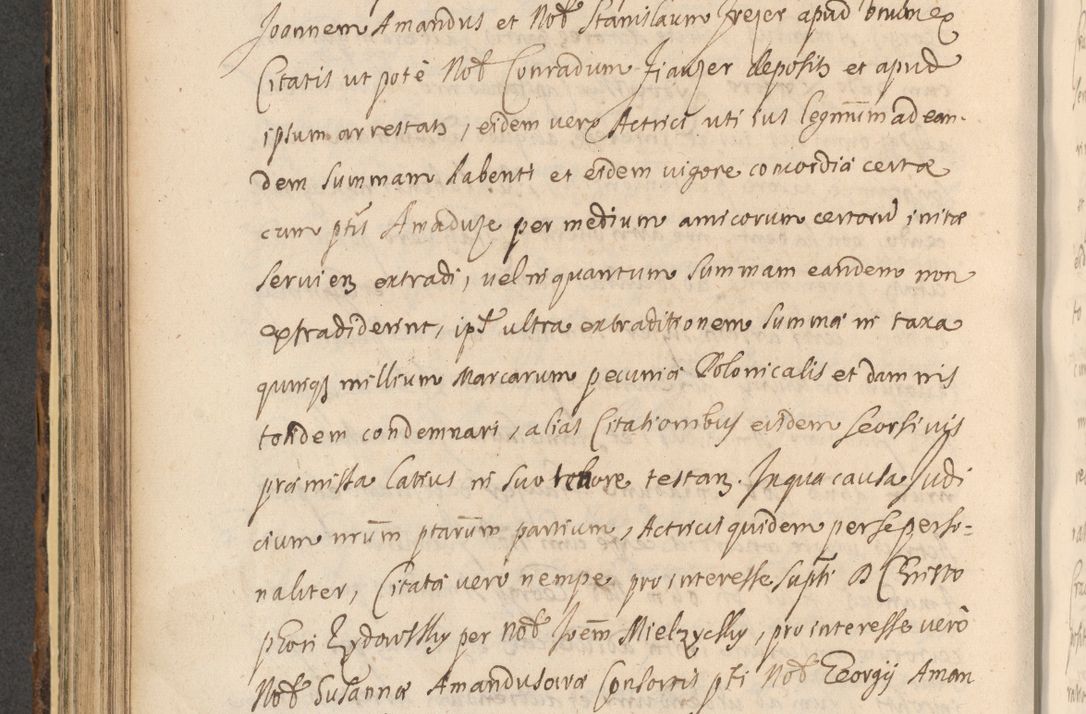 Joannem Amandus et Nob Stanislaum Frejer apud unum ex
Citatis ut potè Nob Conradum Fiauzer depositis et apud
ipsum arrestatis, eidem vero Actrici uti ius legitimum ad ean-
dem summam habenti et eidem vigore concordiæ certæ
cum ptis Amaduze per medium amicorum certoru initæ
servien extradi, vel in quantum summam eandem non
extradiderint, ipsos ultra extraditionem summæ in taxa
quinqz millium Marcarum pecuniæ Polonicalis et damnis
totidem condemnari, alias Citationibus eisdem seorsivis
præmissa latius in suo tenore testan. In qua causa Judi
cium nrum ptarum partium, Actricis quidem per se perso=
naliter, Citatæ vero nempe pro interesse supti D Christo
phori Zydowsky per Nob Joem Mielzycky, pro interesse verò
Nob Susannæ Amandusowa Consortis pti Nob Georgij Aman